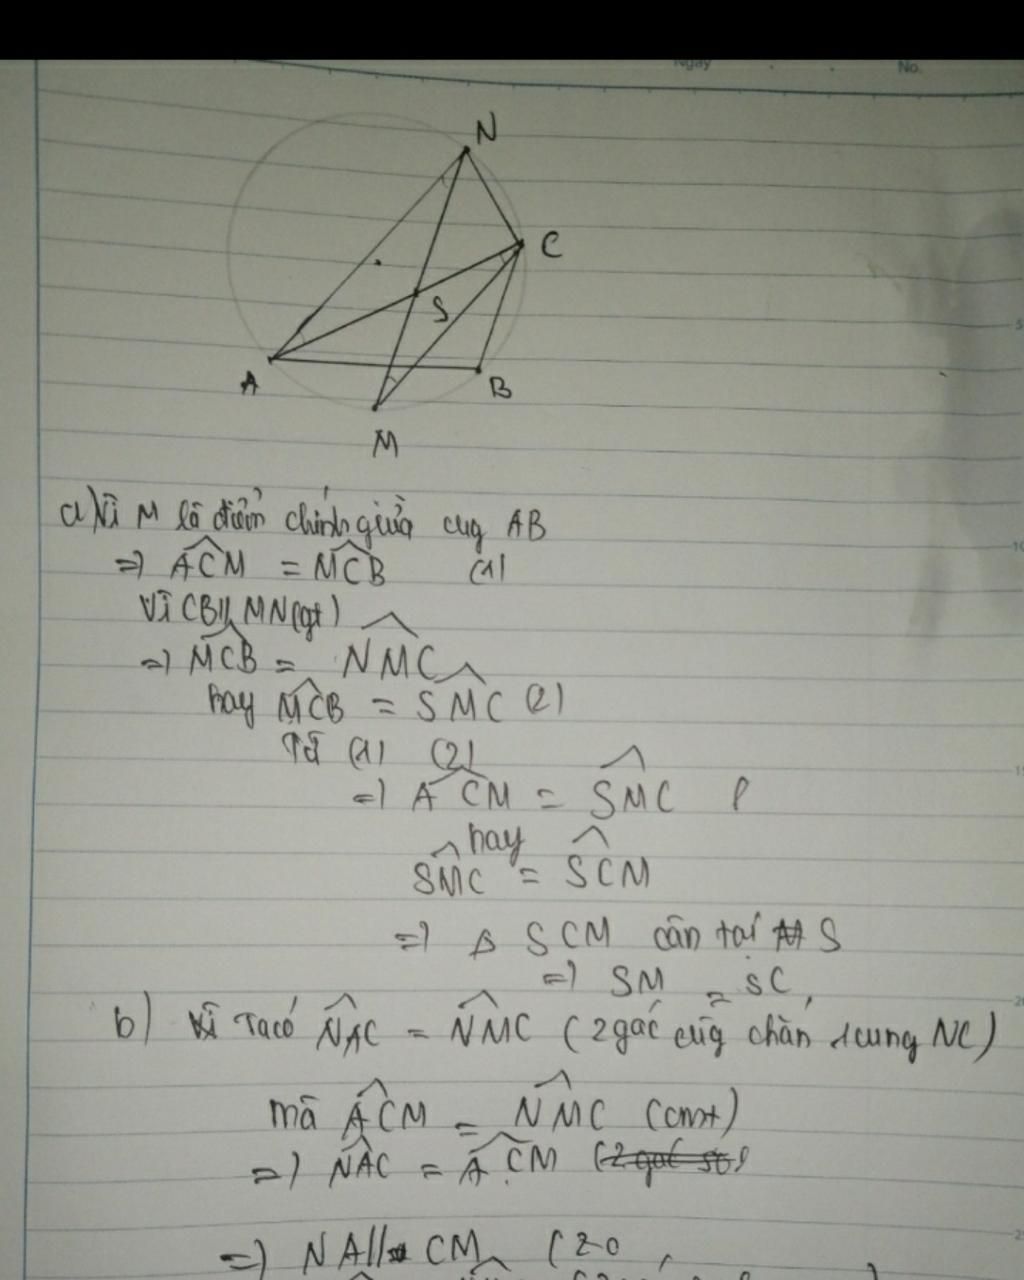 Ngày
No.
N
C
S
A
B
M
a) Vì M là điểm chính giữa cug AB
=> ACM = MCB (1)
Vì CB // MN (gt)
=> MCB = NMC
hay MCB = SMC (2)
Từ (1) (2)
=> ACM = SMC
hay
SMC = SCM
=> Δ SCM cân tại S
=> SM = SC,
b) Ta có NAC = NMC (2 góc cùg chắn 1 cung NC)
mà ACM = NMC (cmt)
=> NAC = ACM
=> NA // CM